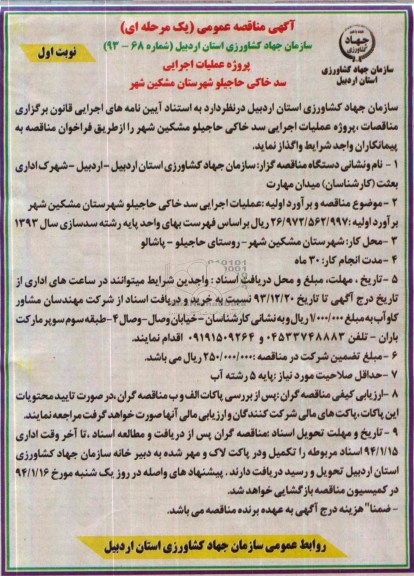 آگهی مناقصه عمومی (یک مرحله ای)
سازمان جهاد کشاورزی استان اردبیل (شماره ۶۸ - ۹۳)
نوبت اول
پروژه عملیات اجرایی
سد خاکی حاجیلو شهرستان مشکین شهر
جهاد کشاورزی
سازمان جهاد کشاورزی
استان اردبیل
سازمان جهاد کشاورزی استان اردبیل درنظردارد به استناد آیین نامه های اجرایی قانون برگزاری
مناقصات ، پروژه عملیات اجرایی سد خاکی حاجیلو مشکین شهر را ازطریق فراخوان مناقصه به
پیمانکاران واجد شرایط واگذار نماید.
۱ - نام ونشانی دستگاه مناقصه گزار: سازمان جهاد کشاورزی استان اردبیل - اردبیل - شهرک اداری
بعثت (کارشناسان) میدان مهارت
۲ - موضوع مناقصه و برآورد اولیه :عملیات اجرایی سد خاکی حاجیلو شهرستان مشکین شهر
برآورد اولیه :۲۶/۹۷۲/۵۶۲/۹۹۷ ریال براساس فهرست بهای واحد پایه رشته سدسازی سال ۱۳۹۳
۳ - محل کار: شهرستان مشکین شهر - روستای حاجیلو - پاشالو
۴ - مدت انجام کار: ۳۰ ماه
۵ - تاریخ ، مهلت، مبلغ و محل دریافت اسناد : واجدین شرایط میتوانند در ساعت های اداری از
تاریخ درج آگهی تا تاریخ ۹۳/۱۲/۲۰ نسبت به خرید و دریافت اسناد از شرکت مهندسان مشاور
کاوآب به مبلغ ۱/۰۰۰/۰۰۰ ریال و به نشانی کارشناسان - خیابان وصال - وصال ۴ - طبقه سوم سوپر مارکت
باران - تلفن ۰۴۵۳۳۷۴۸۸۸۳ و ۰۹۱۹۱۵۰۹۲۶۴ اقدام نمایند.
۶ - مبلغ تضمین شرکت در مناقصه :۲۵۰/۰۰۰/۰۰۰ ریال می باشد.
۷ - حداقل صلاحیت مورد نیاز :پایه ۵ رشته آب
۸ - ارزیابی کیفی مناقصه گران :پس از بررسی پاکات الف و ب مناقصه گران ،در صورت تایید محتویات
این پاکات ،پاکت های مالی شرکت کنندگان و ارزیابی مالی آنها صورت خواهد گرفت مراجعه نمایند.
۹ - تاریخ و مهلت تحویل اسناد :مناقصه گران پس از دریافت و مطالعه اسناد ،تا آخر وقت اداری
۹۴/۱/۱۵ اسناد مربوطه را تکمیل ودر پاکت لاک و مهر شده به دبیر خانه سازمان جهاد کشاورزی
استان اردبیل تحویل و رسید دریافت دارند . پیشنهاد های واصله در روز یک شنبه مورخ ۹۴/۱/۱۶
در کمیسیون مناقصه بازگشایی خواهد شد.
- ضمنا" هزینه درج آگهی به عهده برنده مناقصه می باشد.
روابط عمومی سازمان جهاد کشاورزی استان اردبیل